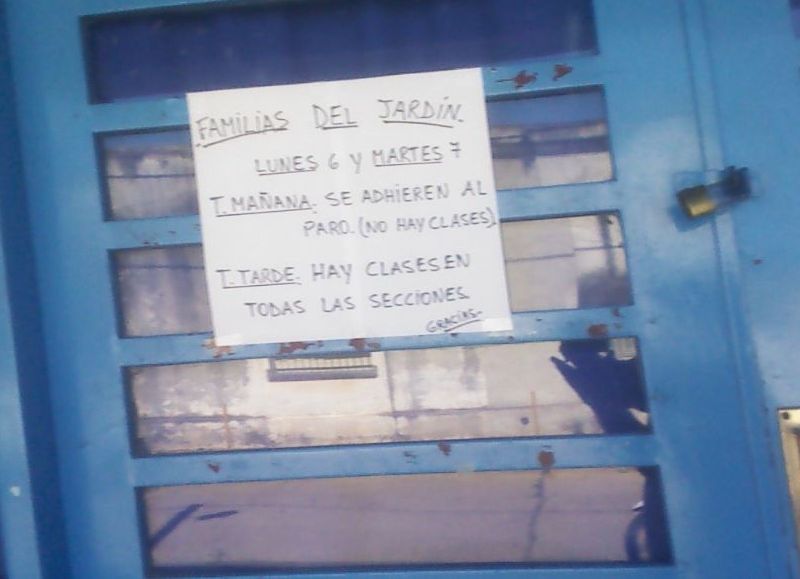 FAMILIAS DEL JARDÍN.
LUNES 6 y MARTES 7
T. MAÑANA: SE ADHIEREN AL
PARO. (NO HAY CLASES).
T. TARDE: HAY CLASES EN
TODAS LAS SECCIONES.
GRACIAS.-